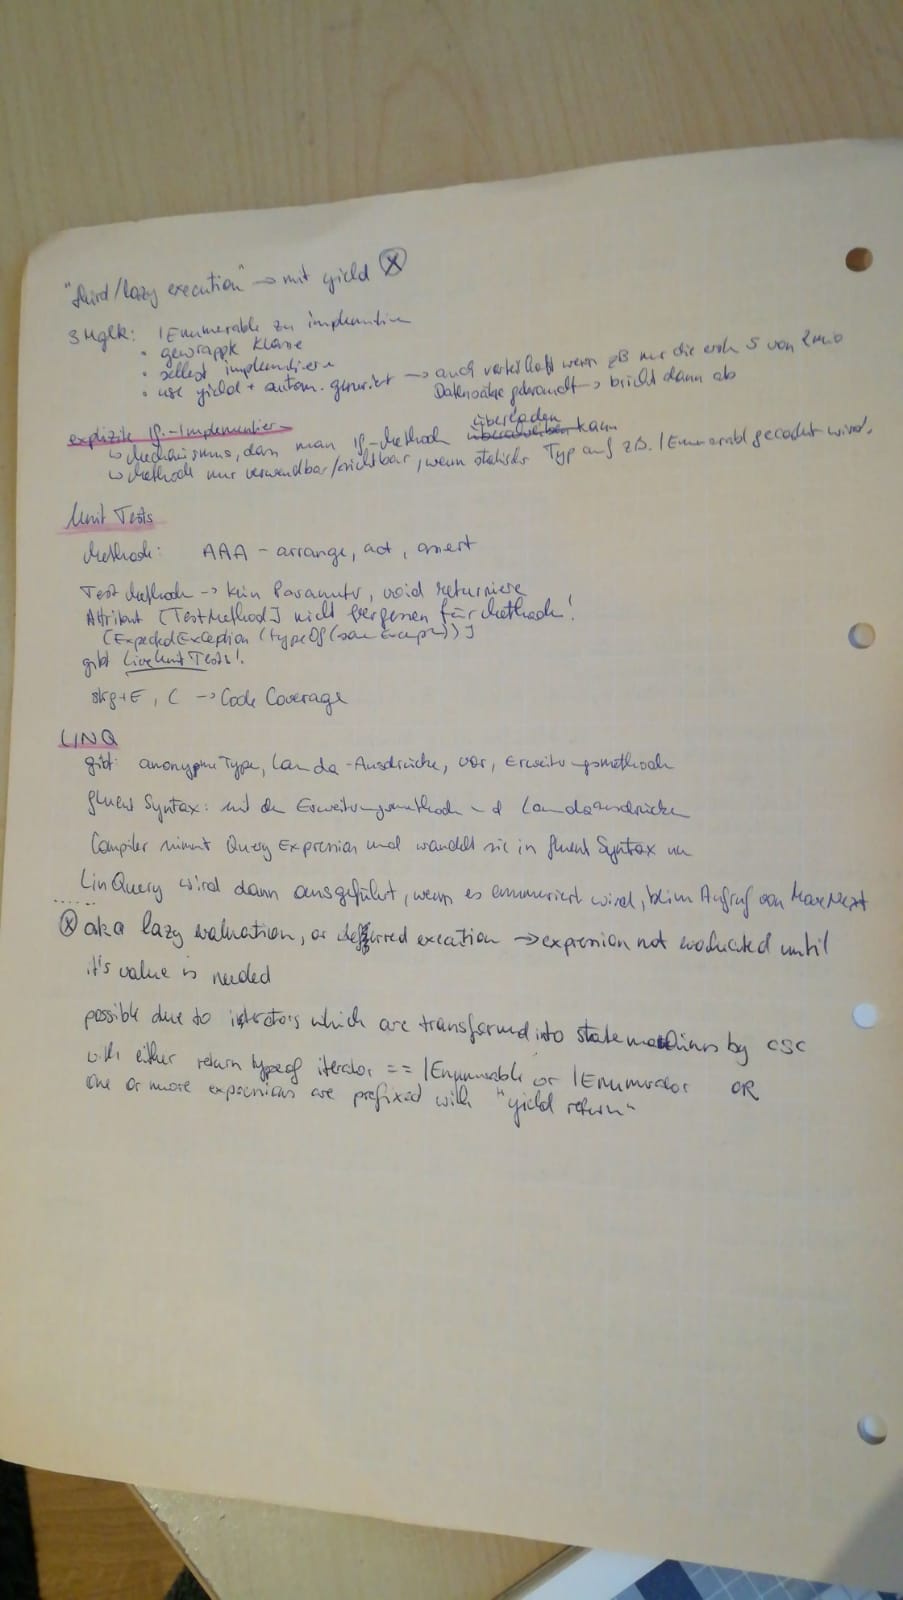 "third/lazy execution" → mit yield ⊗
3 Mglk: IEnumerable zu implementieren
• gewrappte Klasse
• selbst implementieren
• use yield + autom. generiert → auch vorteilhaft wenn zB nur die ersten 5 von 2 mio
Datensätze gebraucht → bricht dann ab
explizite If.-Implementier
↳ Mechanismus, dass man If-Methode überladen kann
↳ Methode nur verwendbar/sichtbar, wenn statischer Typ auf zB. IEnumerabl gecastet wird.
Unit Tests
Methode: AAA - arrange, act, assert
Test Methode → kein Parameter, void returniere
Attribut [TestMethod] nicht vergessen für Methode!
[ExpectedException (typeOf(some Exception))]
gibt Live Unit Tests!
strg+E, C → Code Coverage
LINQ
gibt: anonyme Type, Lambda-Ausdrücke, var, Erweiterungsmethoden
fluent Syntax: mit den Erweiterungsmethoden und Lambdaausdrücken
Compiler nimmt Query Expression und wandelt sie in fluent Syntax um
LinQuery wird dann ausgeführt, wenn es enumeriert wird, beim Aufruf von MoveNext
⊗ aka lazy evaluation, or deferred execution → expression not evaluated until
it's value is needed
possible due to iterators which are transformed into statemachines by CSC
with either return type of iterator == IEnumerable or IEnumerator OR
one or more expressions are prefixed with "yield return"